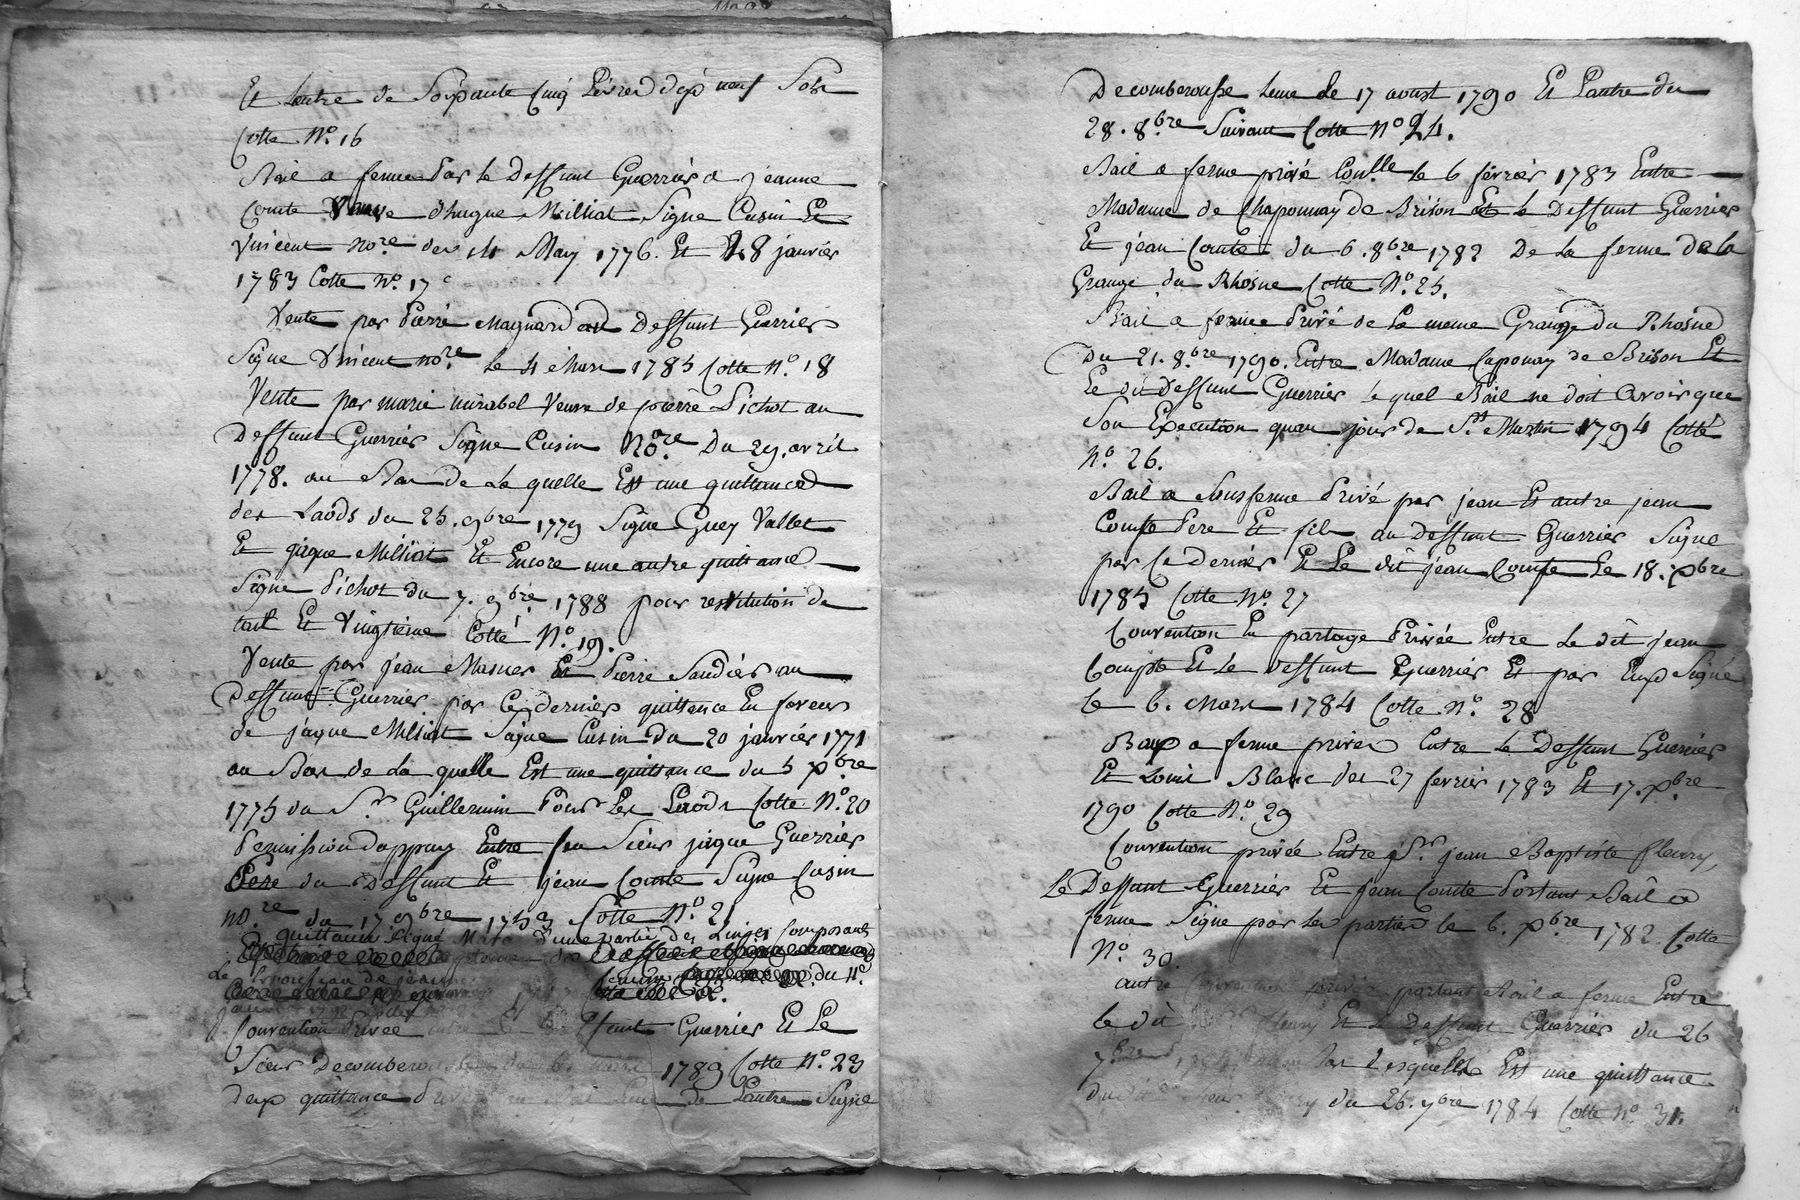 Et Lautre de Soixante Cinq Livres dix neuf Sols
Cotte N.o 16
Bail a ferme Par le Deffunt Guerrier a jeanne
Comte Veuve dhugue Milliat Signe Cusin Et
Vincent No.re des 14 May 1776. Et 28 janvier
1783 Cotte N.o 17
Vente par Pierre Magnard au Deffunt Guerrier
Signe Vincent no.re le 4 Mars 1785 Cotte N.o 18
Vente par marie mirabel Veuve de pierre Pichot au
Deffunt Guerrier Signe Cusin No.re Du 29. avril
1778. au Bas De La quelle Est une quittance
des Laods du 25. 9bre 1779 Signe Guey Vallet
Et jaque Milliat Et Encore une autre quittance
Signe Pichot du 7. 9bre 1788 pour restitution de
tail Et Vingtieme Cotté N.o 19.
Vente par jean Masner Et Pierre Saudier au
Deffunt Guerrier par Ce dernier quittance En faveur
de jaque Milliat Signe Cusin Du 20 janvier 1771
au Bas de La quelle Est une quittance du 5 xbre
1775 du S.r Guillermin Pour Les Laods Cotte N.o 20
Permission dappuy Entre feu Sieur jaque Guerrier
Pere du Deffunt Et jean Comte Signe Cusin
no.re du 17 9bre 1753 Cotte N.o 21
quittance Signé dune partie des Linges Composants
Le trousseau de jeanne du 11e
Convention Privée Deffunt Guerrier Et Le
Sieur Decomberousse 1789 Cotte N.o 23
deux quittance de Lautre Signe
Decomberousse Lune Le 17 aoust 1790 Et Lautre du
28. 8bre Suivant Cotte N.o 24.
Bail a ferme privé Con.lle le 6 fevrier 1783 Entre
Madame de Chaponnay De Brison Et Le Deffunt Guerrier
Et jean Comte du 6. 8bre 1782 De La ferme de la
Grange du Rhosne Cotte N.o 25.
Bail a ferme Privé de La meme Grange du Rhosne
Du 21. 8bre 1790. Entre Madame Caponay de Brison Et
Le dit Deffunt Guerrier le quel Bail ne doit avoir que
Son Execution quau jour de S.t Martin 1794 Cotté
N.o 26.
Bail a Sousferme Privé par jean Et autre jean
Compte Pere Et fils au Deffunt Guerrier Signe
par Ce Dernier Et Le dit jean Compte Le 18. xbre
1785 Cotte N.o 27
Convention En partage Privée Entre Le dit jean
Compte Et Le Deffunt Guerrier Et par Eux Signé
le 6. Mars 1784 Cotte N.o 28
Baux a ferme privée Entre le Deffunt Guerrier
Et Louis Blanc des 27 fevrier 1783 Et 17. xbre
1790 Cotte N.o 29
Convention privée Entre S.r jean Baptiste fleury,
Le Deffunt Guerrier Et jean Comte Portant Bail a
ferme Signe par les parties le 6. xbre 1782. Cotte
N.o 30.
autre Convention privée portant Bail a ferme Entre
le dit fleury Et Le Deffunt Guerrier du 26
7bre Bas desquelles Est une quittance
du 26. 7bre 1784 Cotte N.o 31.